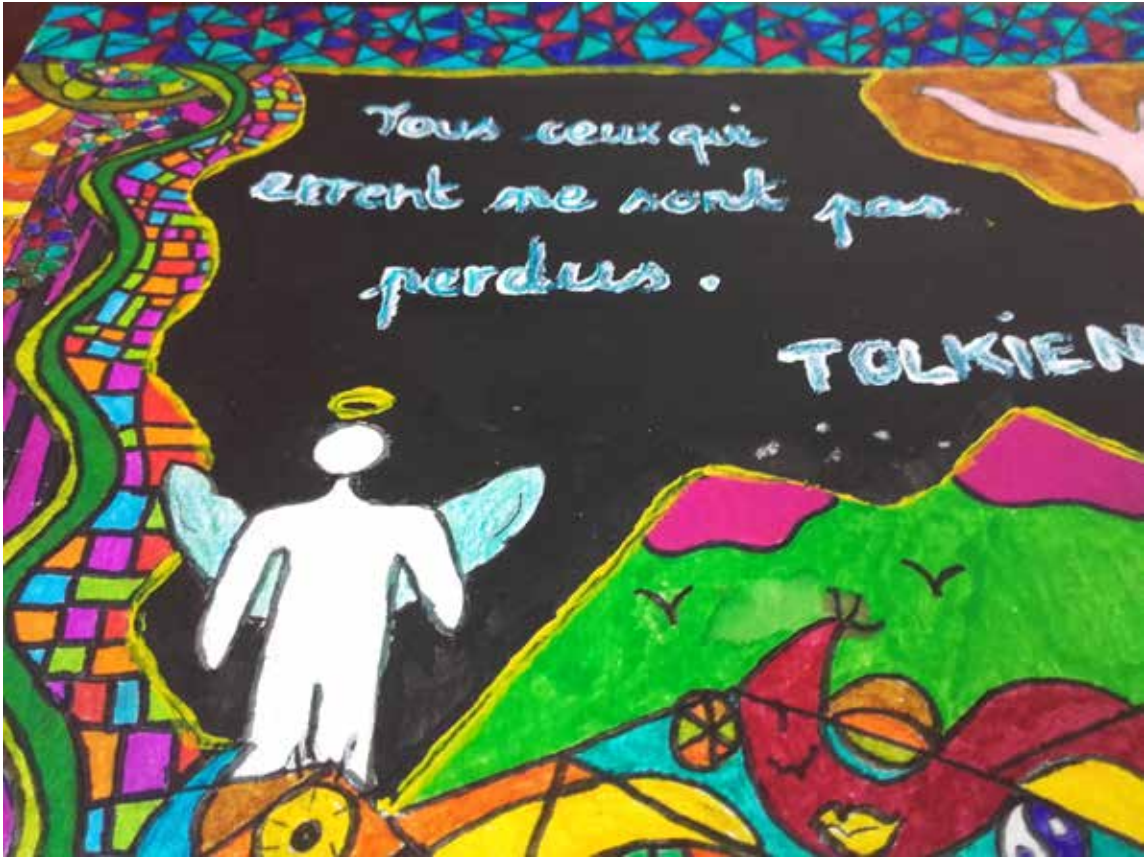 Tous ceux qui
errent ne sont pas
perdus.
TOLKIEN